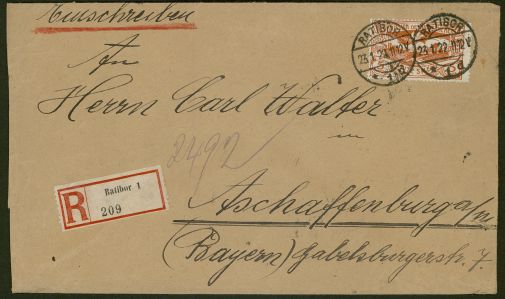 Einschreiben
An
Herrn Carl Walter
in
2492
R
Ratibor 1
209
Aschaffenburg a/m
(Bayern) Gabelsburgerstr. 7.
RATIBOR
23.1.22.11-12V
RATIBOR
23.1.22.11-12V